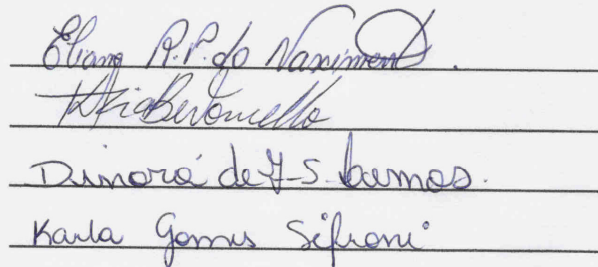 Eliane R.P. do Nascimento.
Kátia Bertoncello
Dinorá de F. S. Lemos.
Karla Gomes Sifroni